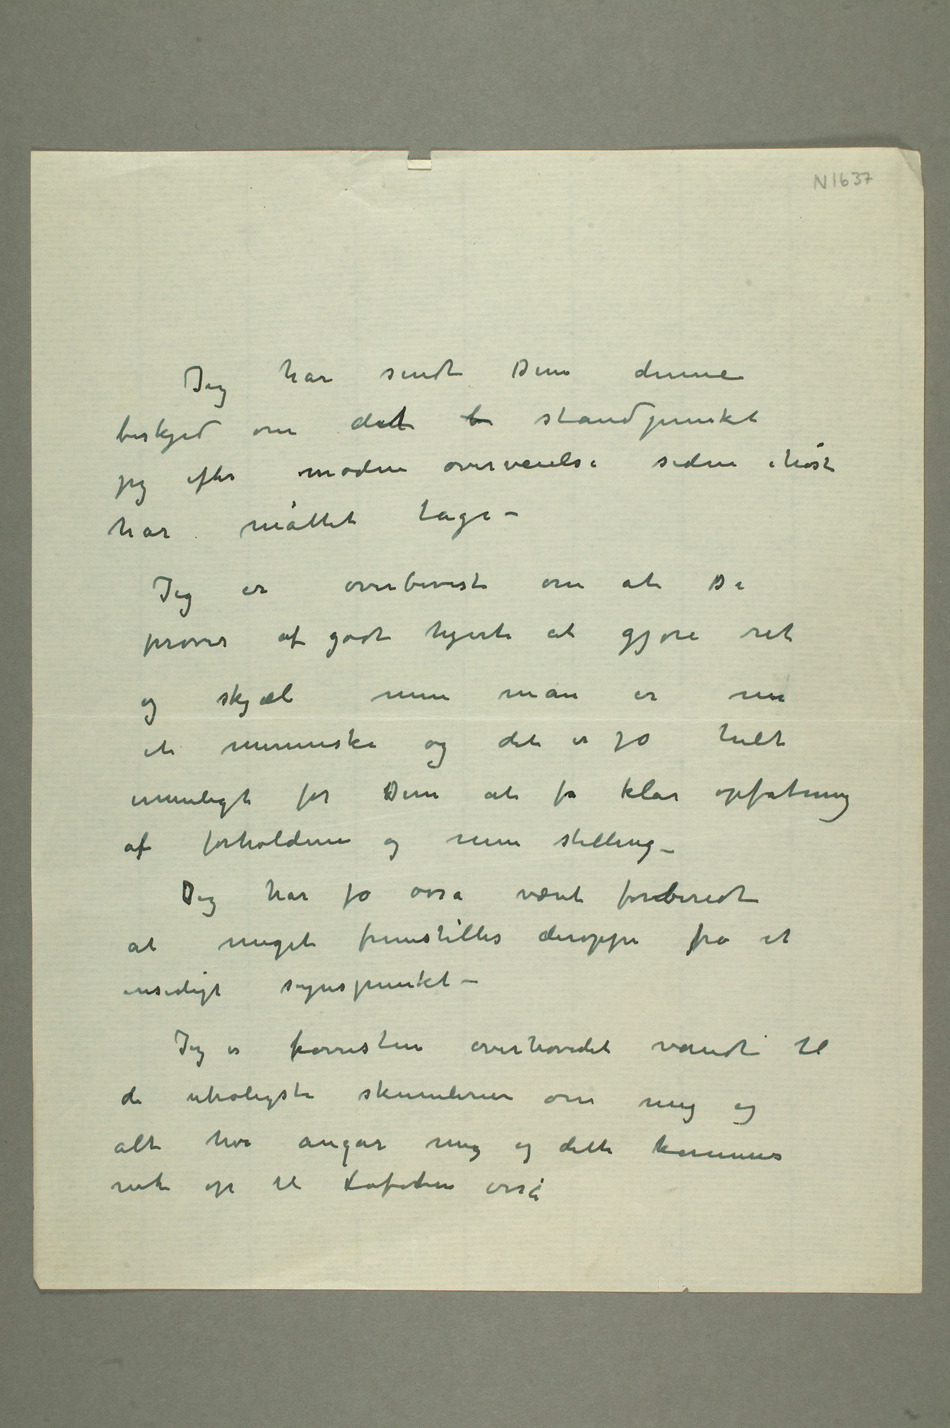 N1637
Jeg har sendt Dem denne
beskjed om det standpunkt
jeg efter moden overveielse siden ihøst
har måttet tage –
Jeg er overbevist om at De
prøver af godt hjerte at gjøre ret
og skjæl men man er nu
et menneske og det er jo helt
umuligt for Dem at fa klar opfatning
af forholdene og min stilling –
Jeg har jo ossa været forberedt
at meget fremstilles deroppe fra et
ensidigt synspunkt –
Jeg er forresten overhovedet vandt til
de utroligste skumlerier om mig og
alt hva angår mig og dette kommer
nok op til Lofoten osså